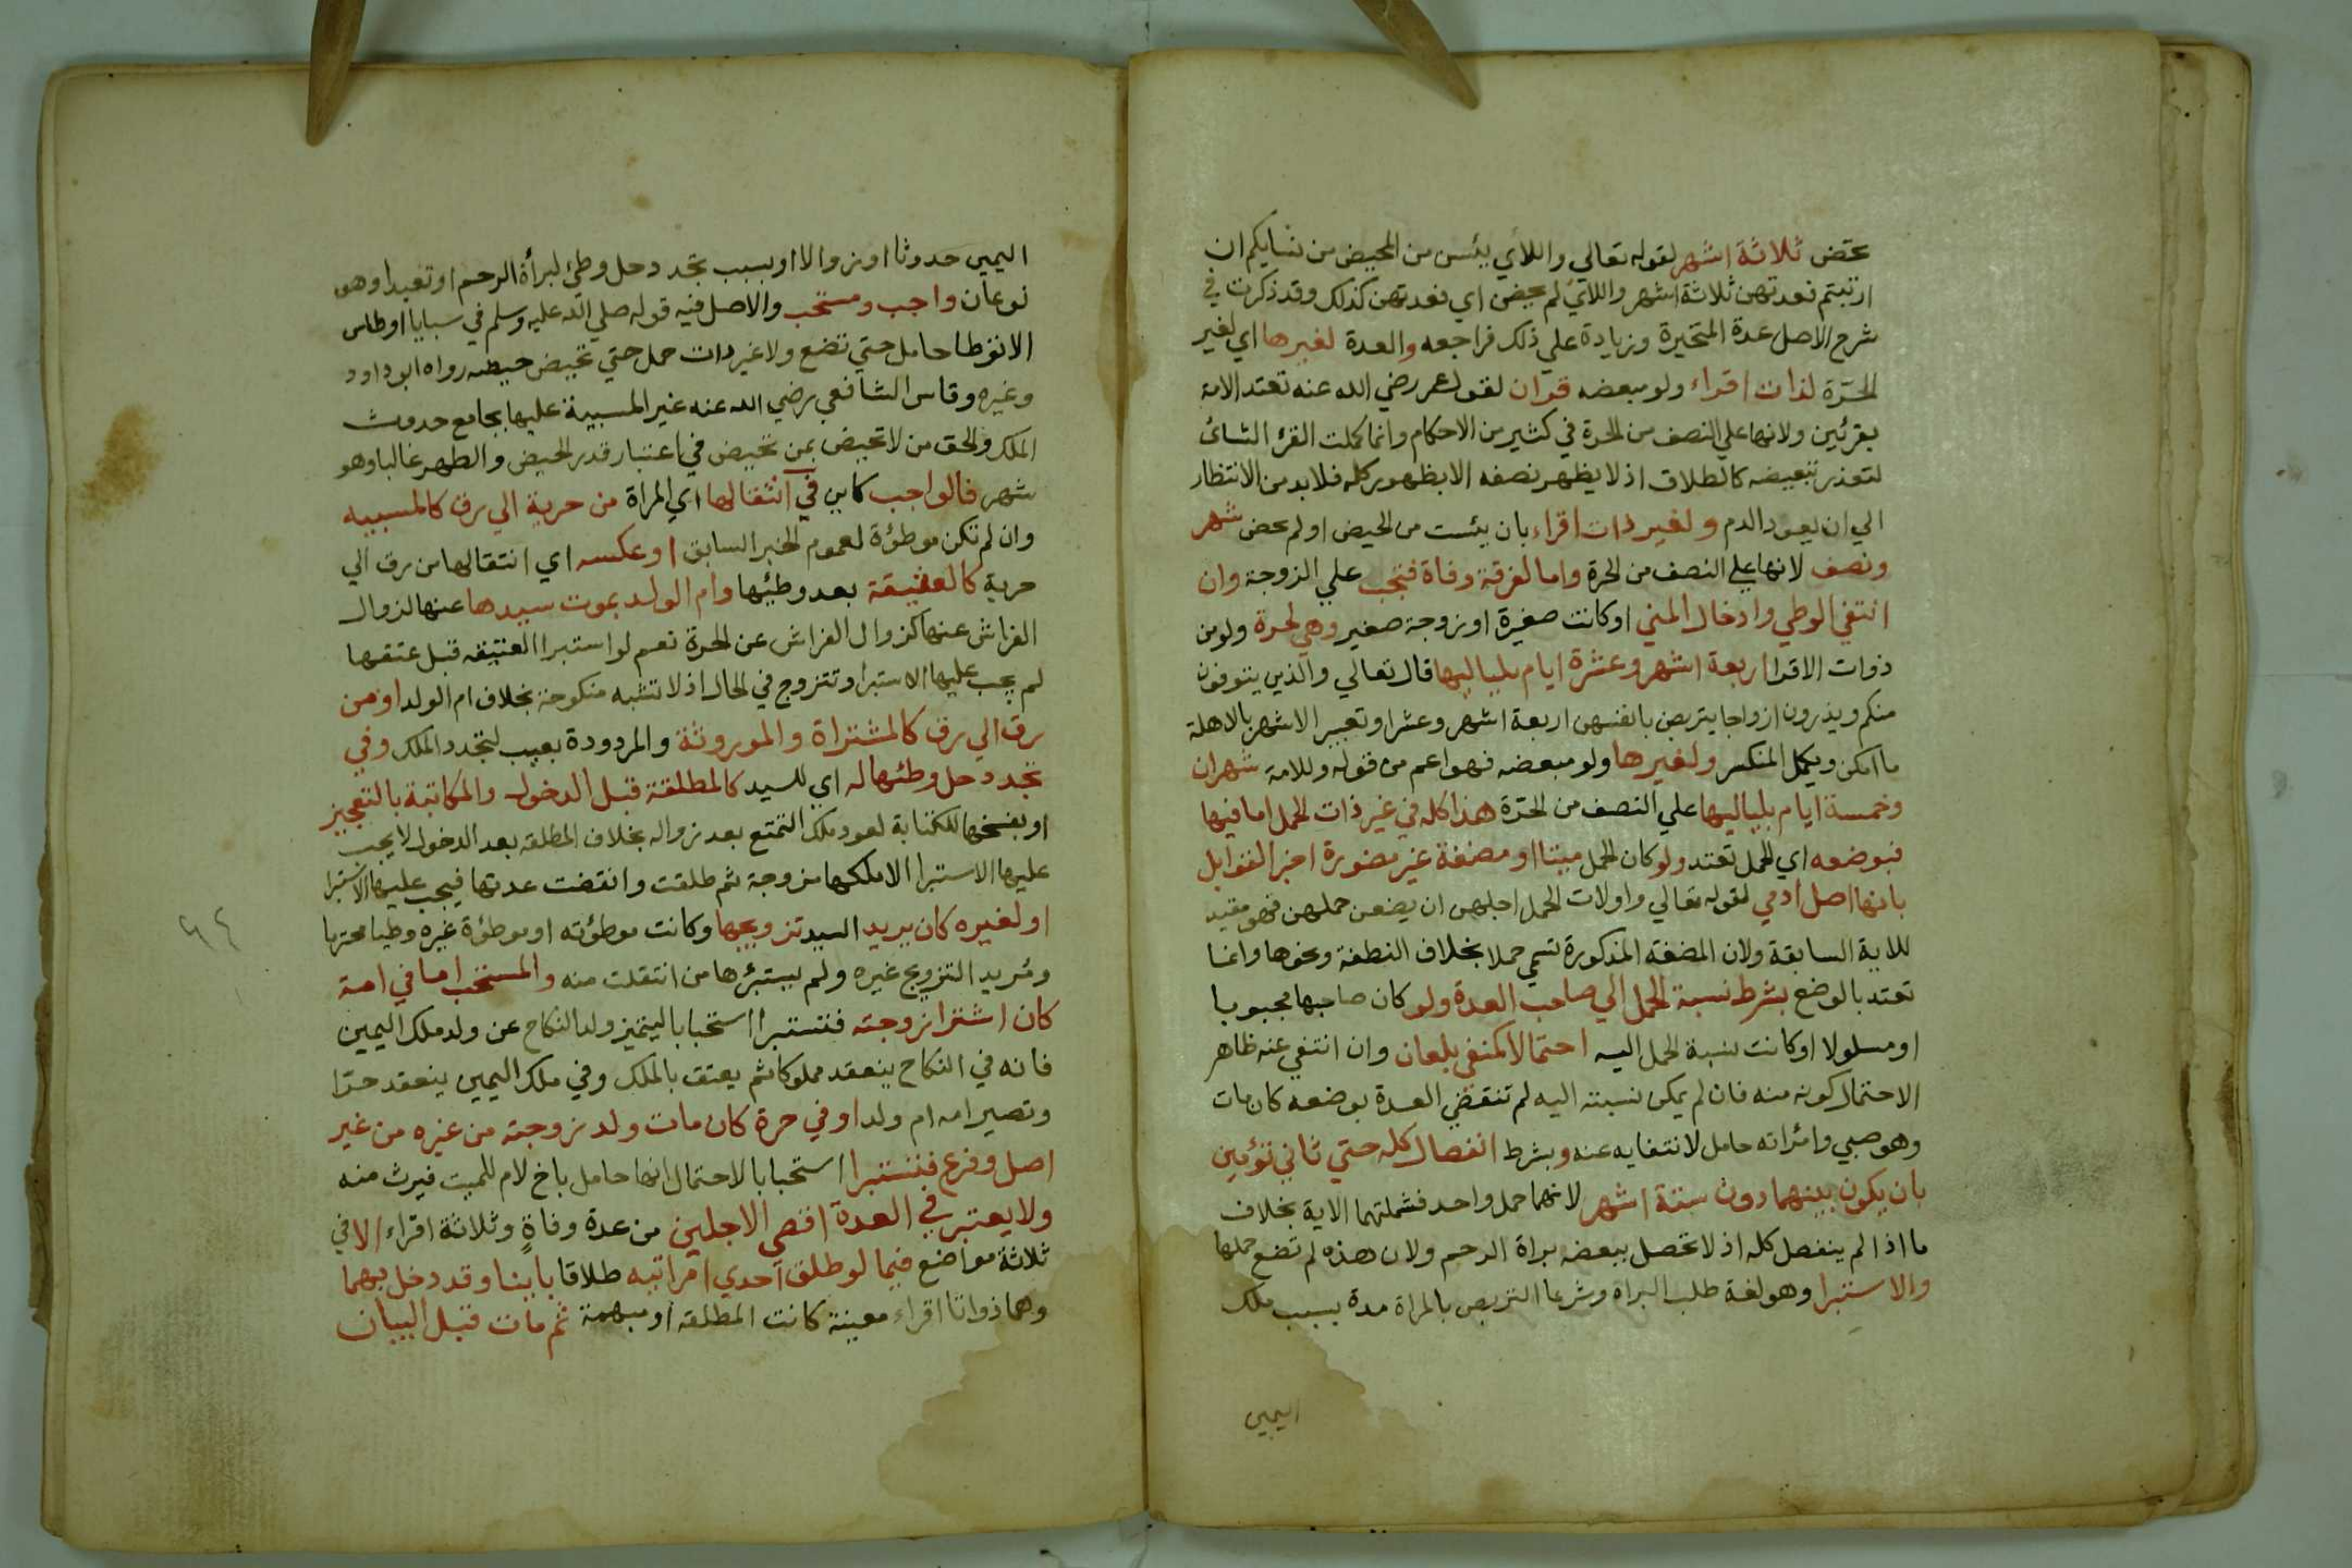 تحض ثلاثة اشهر لقوله تعالي واللاي يئسن من المحيض من نسايكم ان
ارتبتم فعدتهن ثلاثة اشهر واللاي لم يحضن اي فعدتهن كذلك وقد ذكرت في
شرح الاصل عدة المتحيرة وزيادة علي ذلك فراجعه والعدة لغيرها اي لغير
الحرة لذات اقراء ولو مبعضه قرآن لقول عمر رضي الله عنه تعتد الامة
بقرئين ولانها علي النصف من الحرة في كثير من الاحكام وانما كملت القرء الثاني
لتعذر تبعيضه كالطلاق اذ لا يظهر نصفه الا بظهور كله فلا بد من الانتظار
الي ان يعود الدم ولغير ذات اقراء بان يئست من الحيض او لم تحض شهر
ونصف لانها علي النصف من الحرة واما لفرقة وفاة فتجب علي الزوجة وان
انتفي الوطي وادخال المني او كانت صغيرة او زوجة صغير وهي لحرة ولو من
ذوات الاقرا اربعة اشهر وعشرة ايام بلياليها قال تعالي والذين يتوفون
منكم ويذرون ازواجا يتربصن بانفسهن اربعة اشهر وعشرا وتعتبر الاشهر بالاهلة
ما امكن ويكمل المنكسر ولغيرها ولو مبعضه فهو اعم من قوله وللامة شهران
وخمسة ايام بلياليها علي النصف من الحرة هذا كله في غير ذات الحمل اما فيها
فبوضعه اي الحمل تعتد ولو كان الحمل ميتا او مضغة غير مصورة اخبر القوابل
بانها اصل ادمي لقوله تعالي واولات الحمل اجلهن ان يضعن حملهن فهو مقيد
للاية السابقة ولان المضغة المذكورة تسمي حملا بخلاف النطفة ونحوها وانما
تعتد بالوضع بشرط نسبة الحمل الي صاحب العدة ولو كان صاحبها مجبوبا
او مسلولا او كانت نسبة الحمل اليه احتمالا كمنفي بلعان وان انتفي عنه ظاهر
الاحتمال كونه منه فان لم يمكن نسبته اليه لم تنقضي العدة بوضعه كان مات
وهو صبي وامراته حامل لانتفايه عنه وبشرط انفصال كله حتي ثاني توءمين
بان يكون بينهما دون ستة اشهر لانهما حمل واحد فشملتهما الاية بخلاف
ما اذا لم ينفصل كله اذ لا تحصل ببعضه براة الرحم ولان هذه لم تضع حملها
والاستبرا وهو لغة طلب البراة وشرعا التربص بالمراة مدة بسبب ملك
اليمين
اليمين حدوثا او زوالا او بسبب تجدد حل وطئ لبرأة الرحم او تعبدا وهو
نوعان واجب ومستحب والاصل فيه قوله صلي الله عليه وسلم في سبايا اوطاس
الا توطا حامل حتي تضع ولا غير ذات حمل حتي تحيض حيضه رواه ابو داود
وغيره وقاس الشافعي رضي الله عنه غير المسبية عليها بجامع حدوث
الملك والحق من لا تحيض بمن تحيض في اعتبار قدر الحيض والطهر غالبا وهو
شهر فالواجب كاين في انتقالها اي المراة من حرية الي رق كالمسبيه
وان لم تكن موطؤة لعموم الخبر السابق او عكسه اي انتقالها من رق الي
حرية كالعتيقة بعد وطئها وام الولد بموت سيدها عنها لزوال
الفراش عنها كزوال الفراش عن الحرة نعم لو استبرا العتيقه قبل عتقها
لم يجب عليها الاستبرا وتتزوج في الحال اذ لا تشبه منكوحة بخلاف ام الولد او من
رق الي رق كالمشتراة والموروثة والمردودة بعيب لتجدد الملك وفي
تجدد حل وطئها له اي للسيد كالمطلقة قبل الدخول والمكاتبة بالتعجيز
او بفسخها للكتابة لعود ملك التمتع بعد زواله بخلاف المطلقه بعد الدخول لا يجب
عليها الاستبرا الا ملكها مزوجة ثم طلقت وانقضت عدتها فيجب عليها الاستبرا
او لغيره كان يريد السيد تزويجها وكانت موطؤته او موطؤة غيره وطيا محترما
ومريد التزويج غيره ولم يستبرئها من انتقلت منه والمستحب اما في امة
كان اشترا زوجته فتستبرا استحبابا ليتميز ولد النكاح عن ولد ملك اليمين
فانه في النكاح ينعقد مملوكا ثم يعتق بالملك وفي ملك اليمين ينعقد حرا
وتصير امه ام ولد او في حرة كان مات ولد زوجته من غيره من غير
اصل وفرع فتستبرا استحبابا لاحتمال انها حامل باخ لام للميت فيرث منه
ولا يعتبر في العدة اقصي الاجلين من عدة وفاة وثلاثة اقراء الا في
ثلاثة مواضع فيما لو طلق احدي امراتيه طلاقا باينا وقد دخل بهما
وهما ذواتا اقراء معينة كانت المطلقه او مبهمة ثم مات قبل البيان
٩٤